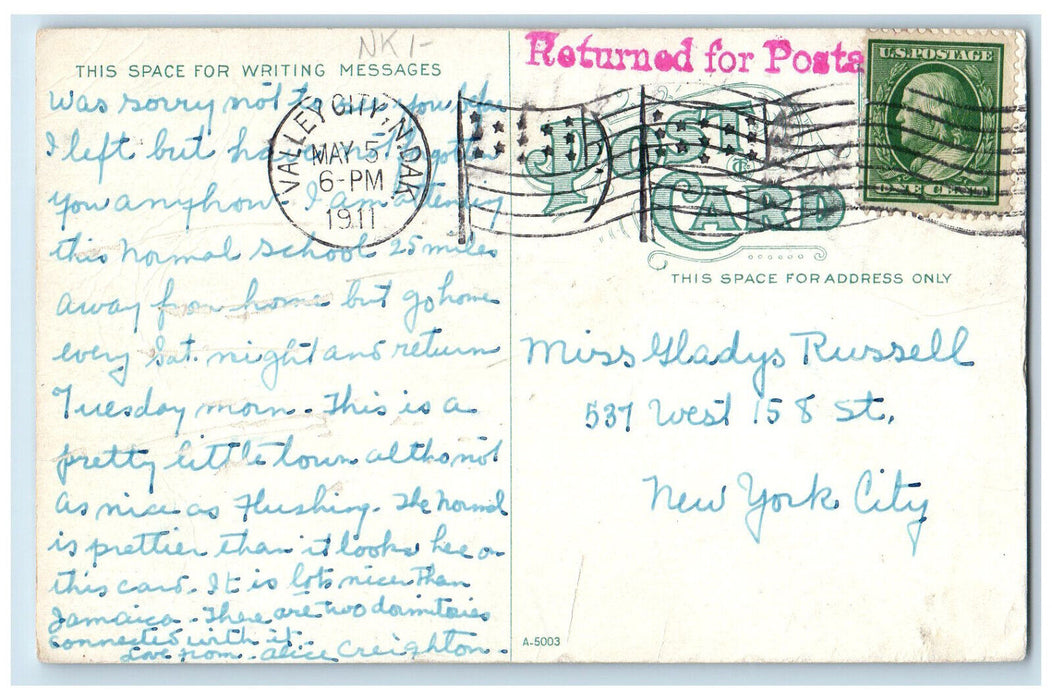 NK1-
THIS SPACE FOR WRITING MESSAGES
Returned for Posta
U.S. POSTAGE
ONE CENT
VALLEY CITY, N. DAK.
MAY 5
6-PM
1911
POST
CARD
THIS SPACE FOR ADDRESS ONLY
Was sorry not to see you before
I left but have not forgotten
you anyhow. I am attending
this Normal School 25 miles
away from home but go home
every Sat. night and return
Tuesday morn. This is a
pretty little town altho not
as nice as Flushing. The Normal
is prettier than it looks here on
this card. It is lots nicer than
Jamaica. There are two dormitories
connected with it.
Love from - Alice Creighton.
Miss Gladys Russell
537 West 158 St.,
New York City
A-5003